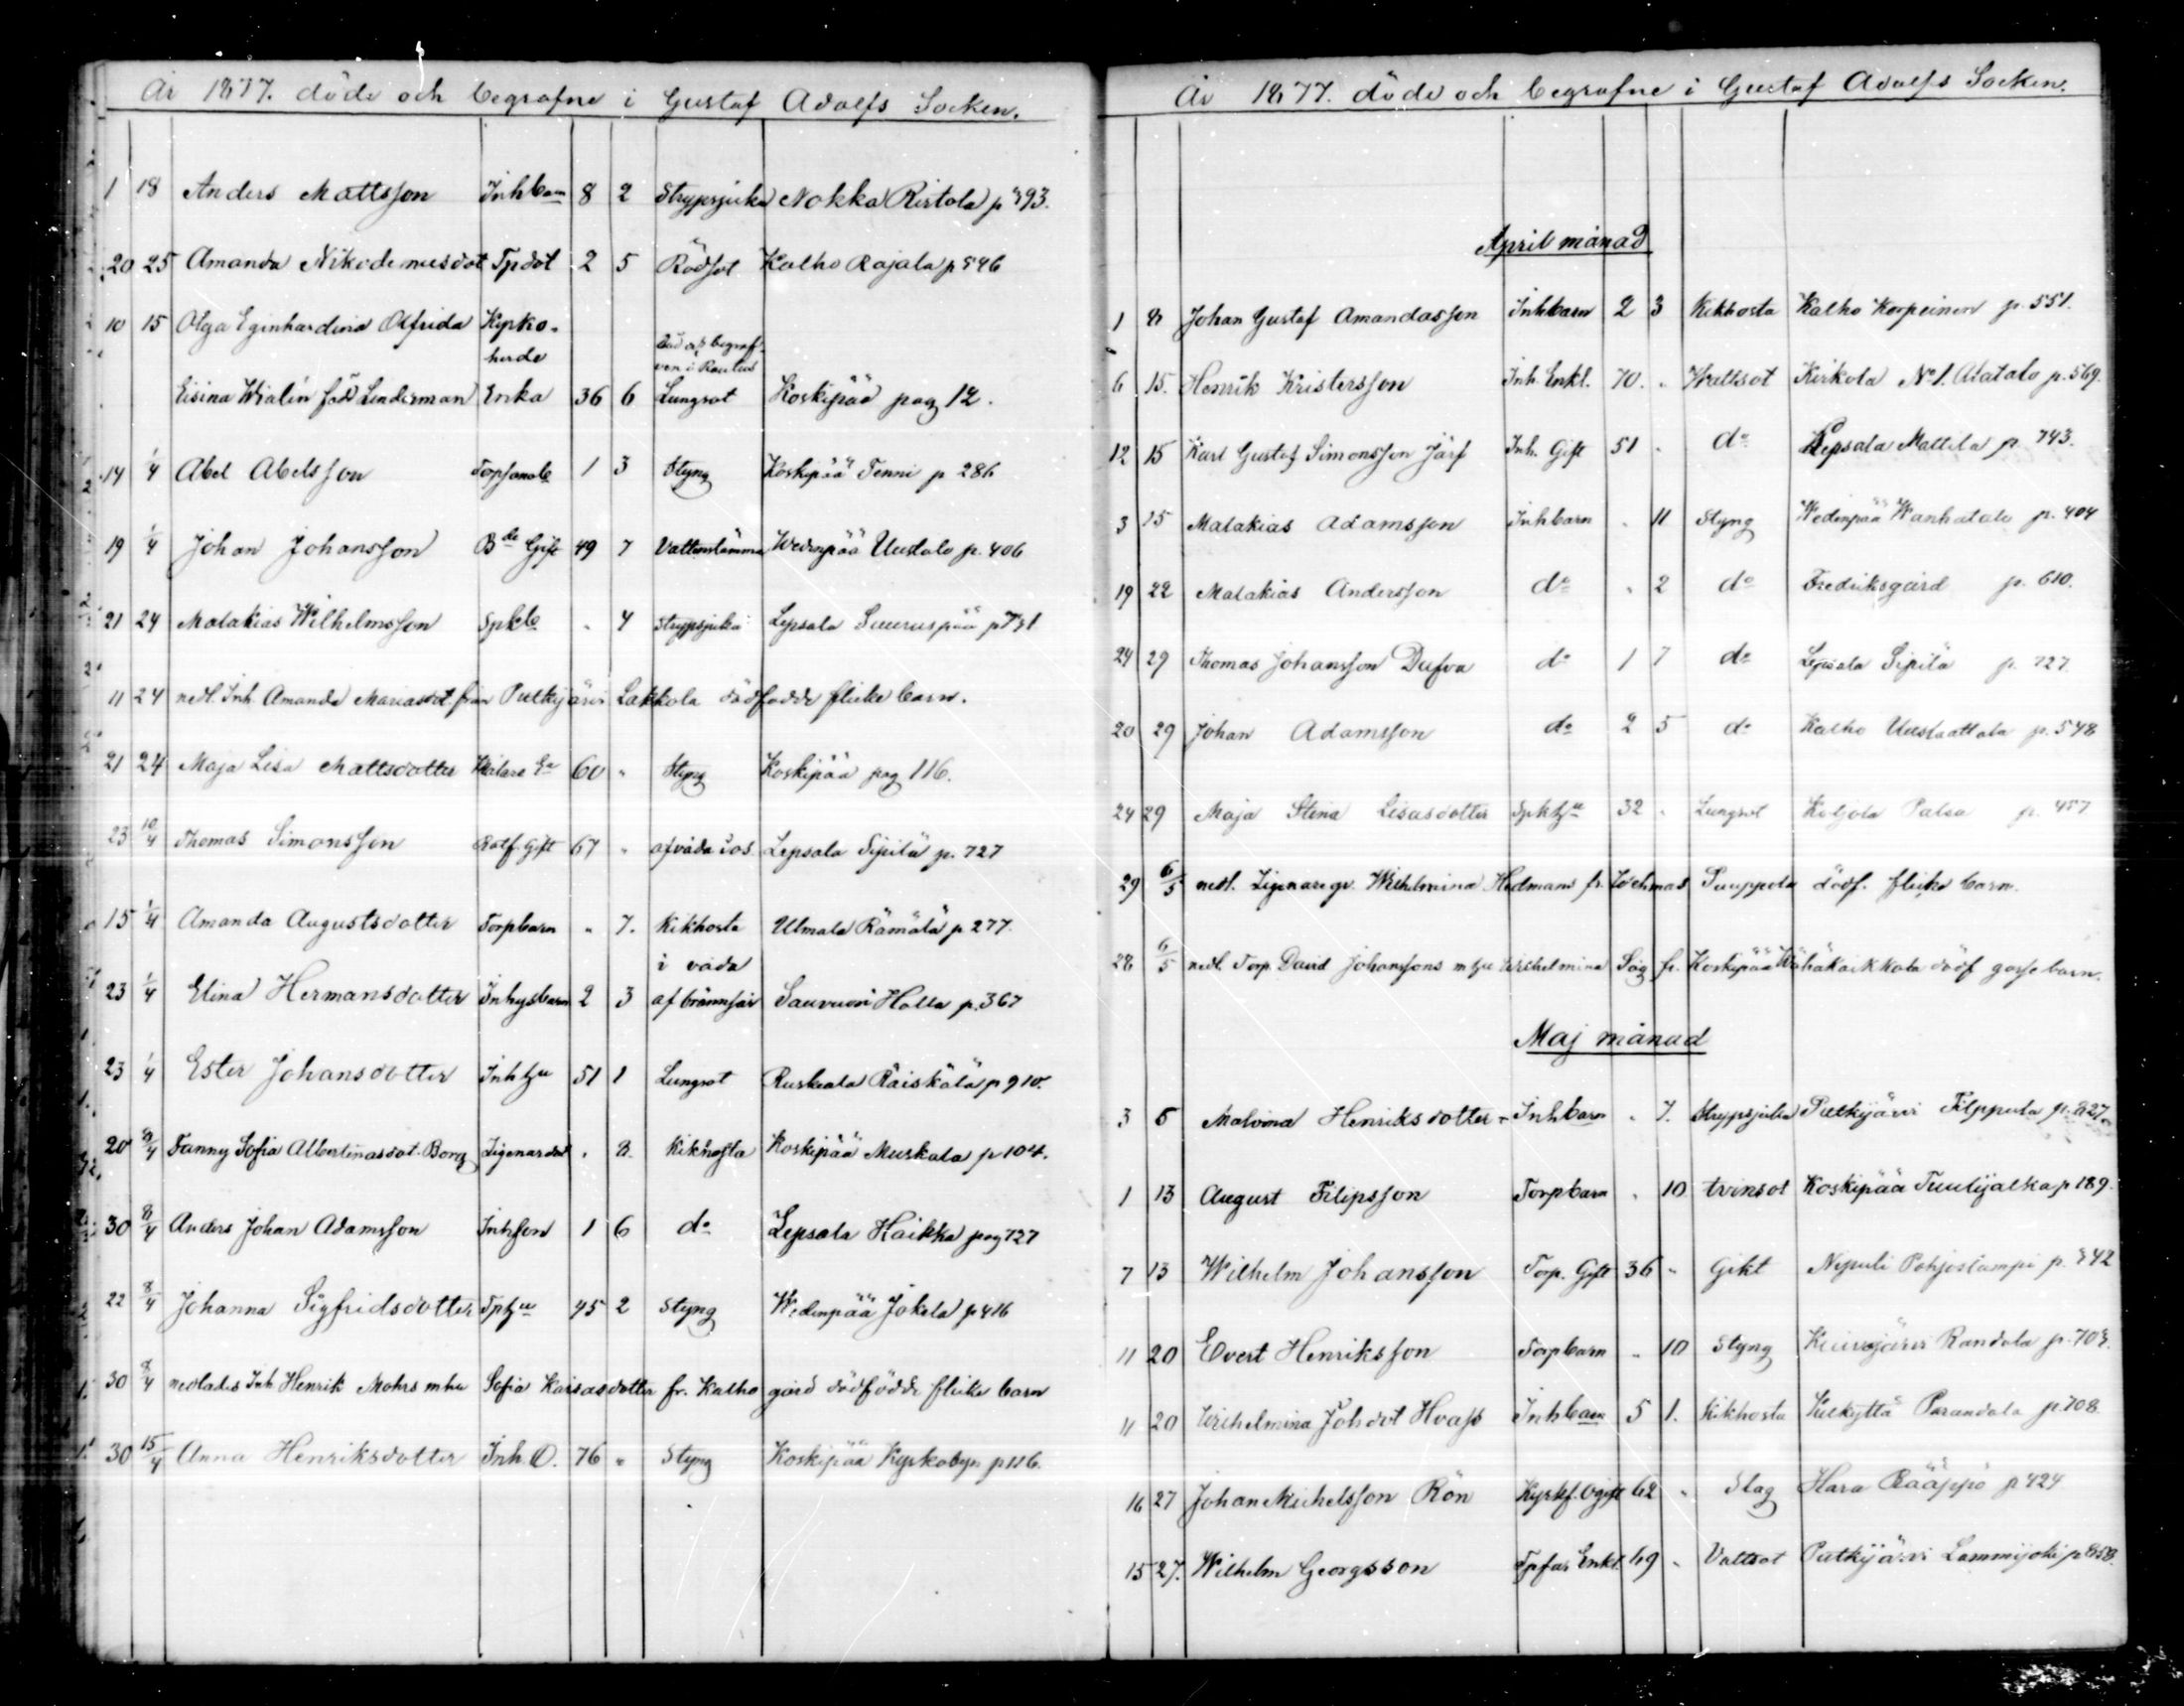 År 1877. döde och begrafne i Gustaf Adolfs Socken.
1 18 Anders Mattsson Inhbarn 8 2 Strypsjuka Nokka Ristola p 393.
20 25 Amanda Nikodemusdot Tpdot 2 5 Rödsot Kalho Rajala p 546
10 15 Olga Eginhardina Alfrida Kyrko-
herde
Eisina Wialin född Linderman Enka 36 6 Lungsot Koskipää pag 12.
14 1/4 Abel Abelsson 1 3 Styng Koskipää Tenni p 286
19 1/4 Johan Johansson Bde Gift 49 7 Wedenpää Uustalo p. 406
21 24 Malakias Wilhelmsson " 4 Strypsjuka Lepsala
11 24 nedl. Inh. Amanda Mariasdot. från Putkijärvi Lakkola dödfödde flicke barn.
21 24 Maja Lisa Mattsdotter 60 " Styng Koskipää pag 116.
23 10/4 Thomas Simonsson Rotf. Gift 67 " af våda död Lepsala Sipilä p. 727
15 1/4 Amanda Augustsdotter Torpbarn " 7. Kikhosta Ulmala Rämälä p 277.
i våda
23 1/4 Elina Hermansdotter Inhysbarn 2 3 af brännsår Sauvuori Holla p. 367
23 1/4 Ester Johansdotter Inhhu 51 1 Lungsot Ruskeala Räiskälä p 910.
20 8/4 Fanny Sofia Albertinasdot. Borg " 8. Kikhosta Koskipää Muskala p 104.
30 8/4 Anders Johan Adamsson Inhson 1 6 do Lepsala Haikka pag 727
22 8/4 Johanna Sigfridsdotter Tphu 45 2 Styng Wedenpää Jokela p 416
30 8/4 nedlades Inh. Henrik Mohrs mhu Sofia Kaisasdotter fr. Kalho gård dödfödde flicke barn
30 15/4 Anna Henriksdotter Inh. O. 76 " Styng Koskipää Kyrkobyn p 116.
År 1877. döde och begrafne i Gustaf Adolfs Socken.
April månad
1 8 Johan Gustaf Amandasson Inhbarn 2 3 Kikhosta Kalho Korpeinen p. 551.
6 15. Henrik Kristersson Inh. Enkl. 70. " Wattsot Kirkola No 1. Alatalo p. 569.
12 15 Karl Gustaf Simonsson Järf Inh. Gift 51 " do Lepsala Mattila p. 743.
3 15 Malakias Adamsson Inhbarn " 11 Styng Wedenpää Wanhatalo p. 404
19 22 Malakias Andersson do " 2 do Fredriksgård p. 610.
24 29 Thomas Johansson Dufva do 1 7 do Lepsala Sipilä p. 727.
20 29 Johan Adamsson do 2 5 do Kalho p. 548
24 29 Maja Stina Lisasdotter 32 " Lungsot Koljola Palsa p. 457
29 6/5 nedl. Wilhelmina Hedmans fr. Suuppola dödf. flicke barn.
28 6/5 nedl. Torp. David Johanssons mhu Wilhelmina Säg fr. Koskipää Wähäkaikkala dödf gosse barn.
Maj månad
3 6 Malvina Henriksdotter Inhbarn " 7. Strypsjuka Putkijärvi Filppula p. 827.
1 13 August Filipsson Torpbarn " 10 tvinsot Koskipää Tuulijalka p 189.
7 13 Wilhelm Johansson Torp. Gift 36 " Gikt Nipuli Pohjoslampi p. 342
11 20 Evert Henriksson Torpbarn " 10 Styng Kuivajärvi Randala p. 703.
11 20 Wilhelmina Johdot Hvass Inhbarn 5 1. Kikhosta Kulkyttä Parandala p. 708
16 27 Johan Michelsson Rön Kyrkf. Ogift 62 " Slag Hara Rääppö p 424
15 27. Wilhelm Georgsson Tpfar Enkl. 69 " Vattsot Putkijärvi Lammijoki p 858.